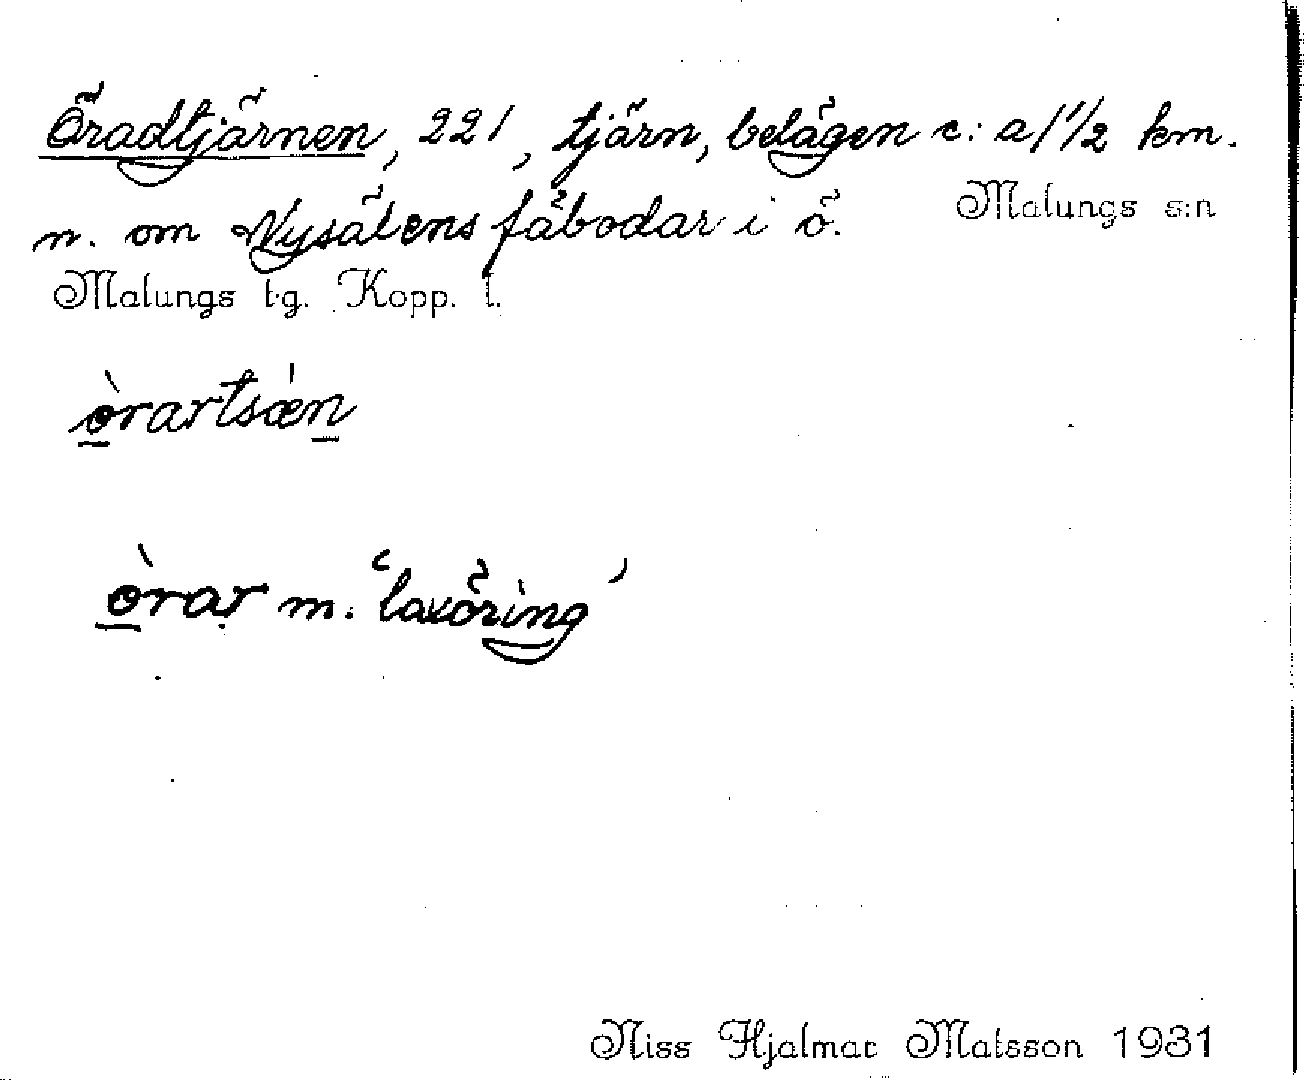 Öradtjärnen, 221, tjärn, belägen c:a 1 1/2 km.
n. om Nysätens fäbodar i ö. Malungs s:n
Malungs t.g. Kopp. l.
òrartsǽn
òrar m. ‘laxöring’
Niss Hjalmar Matsson 1931